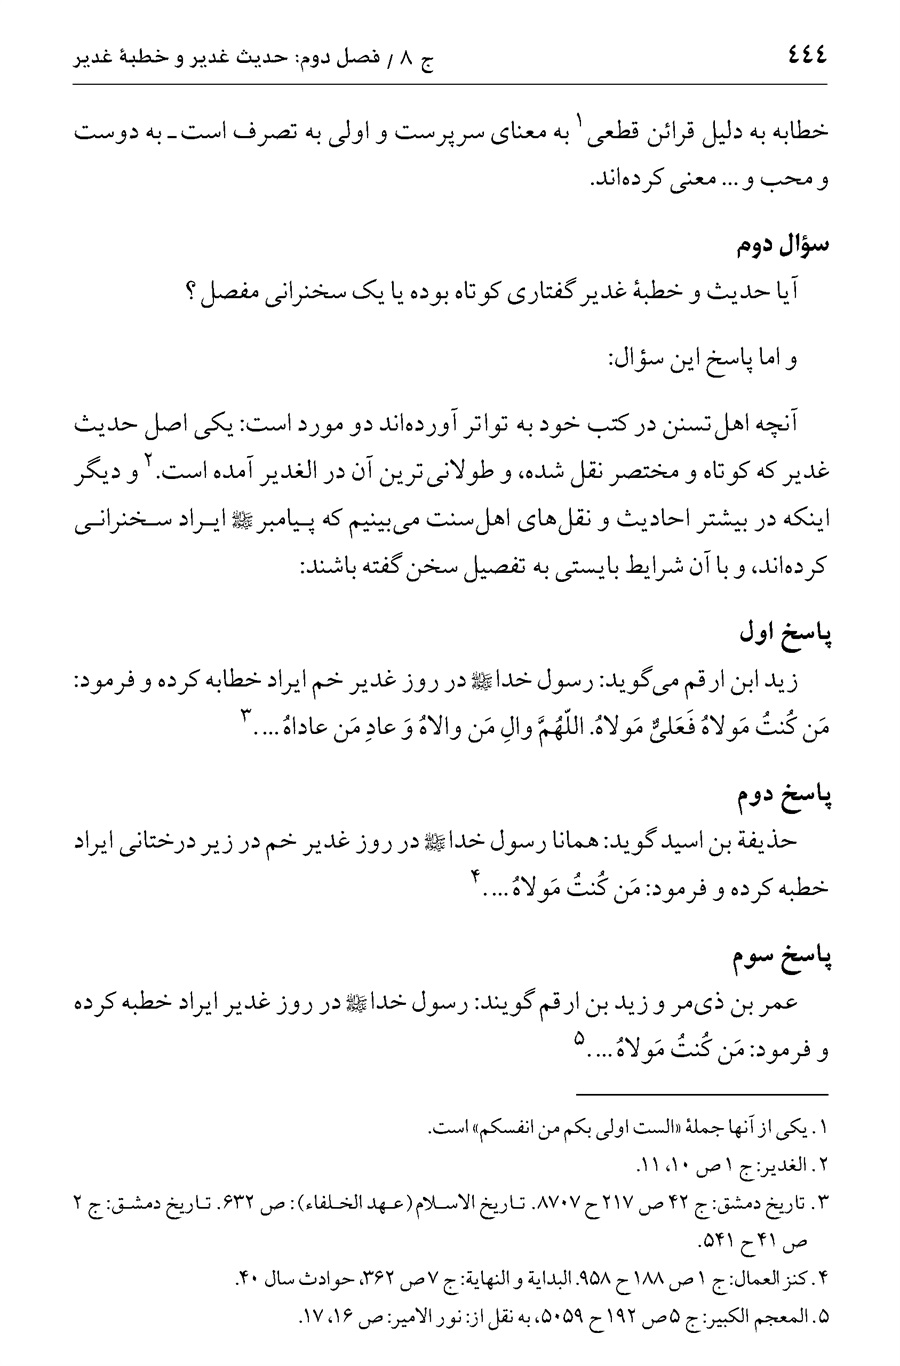 ۴۴۴ ج ۸ / فصل دوم: حدیث غدیر و خطبۀ غدیر
خطابه به دلیل قرائن قطعی۱ به معنای سرپرست و اولی به تصرف است ـ به دوست
و محب و ... معنی کرده‌اند.
سؤال دوم
آیا حدیث و خطبۀ غدیر گفتاری کوتاه بوده یا یک سخنرانی مفصل؟
و اما پاسخ این سؤال:
آنچه اهل‌تسنن در کتب خود به تواتر آورده‌اند دو مورد است: یکی اصل حدیث
غدیر که کوتاه و مختصر نقل شده، و طولانی‌ترین آن در الغدیر آمده است.۲ و دیگر
اینکه در بیشتر احادیث و نقل‌های اهل‌سنت می‌بینیم که پیامبر ﷺ ایراد سخنرانی
کرده‌اند، و با آن شرایط بایستی به تفصیل سخن گفته باشند:
پاسخ اول
زید ابن ارقم می‌گوید: رسول خدا ﷺ در روز غدیر خم ایراد خطابه کرده و فرمود:
مَن کُنتُ مَولاهُ فَعَلیٌّ مَولاهُ. اللّهُمَّ والِ مَن والاهُ وَ عادِ مَن عاداهُ ... .۳
پاسخ دوم
حذیفة بن اسید گوید: همانا رسول خدا ﷺ در روز غدیر خم در زیر درختانی ایراد
خطبه کرده و فرمود: مَن کُنتُ مَولاهُ ... .۴
پاسخ سوم
عمر بن ذی‌مر و زید بن ارقم گویند: رسول خدا ﷺ در روز غدیر ایراد خطبه کرده
و فرمود: مَن کُنتُ مَولاهُ ... .۵
۱. یکی از آنها جملۀ «الست اولی بکم من انفسکم» است.
۲. الغدیر: ج ۱ ص ۱۰، ۱۱.
۳. تاریخ دمشق: ج ۴۲ ص ۲۱۷ ح ۸۷۰۷. تاریخ الاسلام (عهد الخلفاء): ص ۶۳۲. تاریخ دمشق: ج ۲
ص ۴۱ ح ۵۴۱.
۴. کنز العمال: ج ۱ ص ۱۸۸ ح ۹۵۸. البدایة و النهایة: ج ۷ ص ۳۶۲، حوادث سال ۴۰.
۵. المعجم الکبیر: ج ۵ ص ۱۹۲ ح ۵۰۵۹، به نقل از: نور الامیر: ص ۱۶، ۱۷.